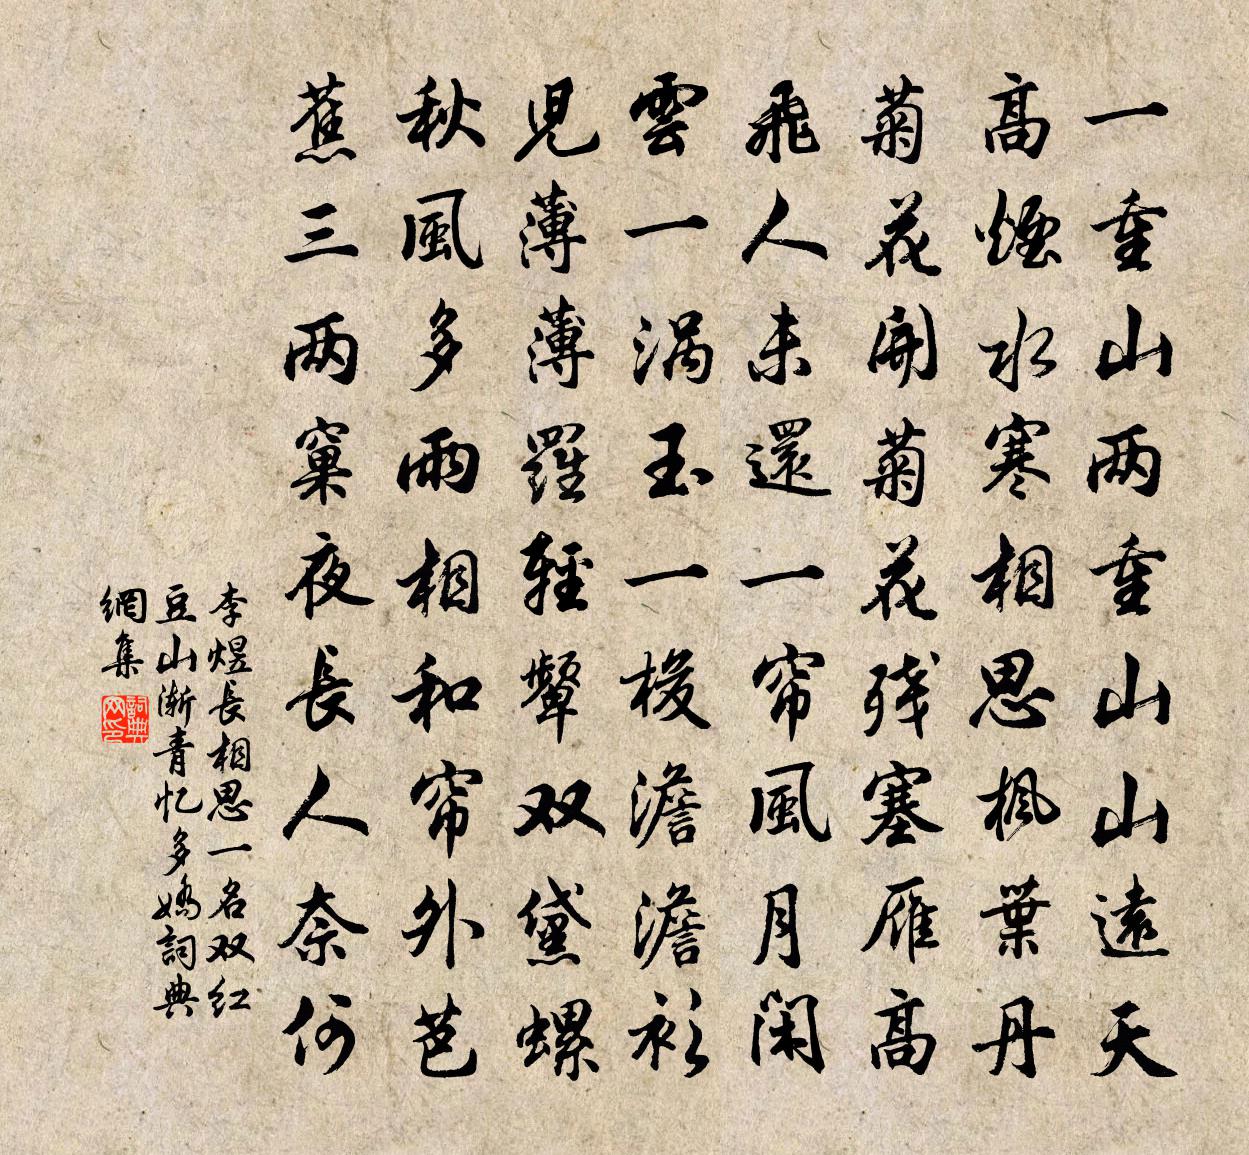 一重山两重山山遠天
高煙水寒相思楓葉丹
菊花開菊花残塞雁高
飛人未還一帘風月閑
雲一涡玉一梭澹澹衫
児薄薄羅輕顰双黛螺
秋風多雨相和帘外芭
蕉三两窠夜長人奈何
李煜長相思一名双红
豆山渐青忆多嬌詞典
網集
詞典网印